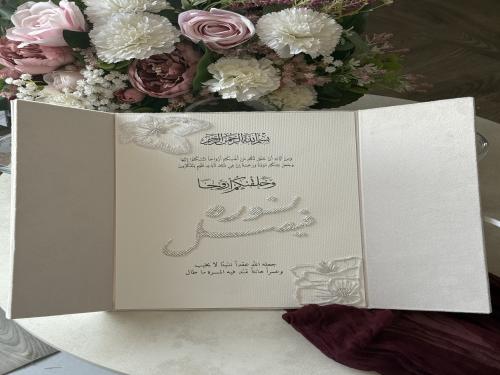 بسم الله الرحمن الرحيم
ومن آياته أن خلق لكم من أنفسكم أزواجا لتسكنوا إليها
وجعل بينكم مودة ورحمة إن في ذلك لآيات لقوم يتفكرون
وخلقنكم أزوجا
نوره
فيصل
جعله الله عقداً متيناً لا يغيب
وعمراً هانئاً تمتد فيه المسرة ما طال